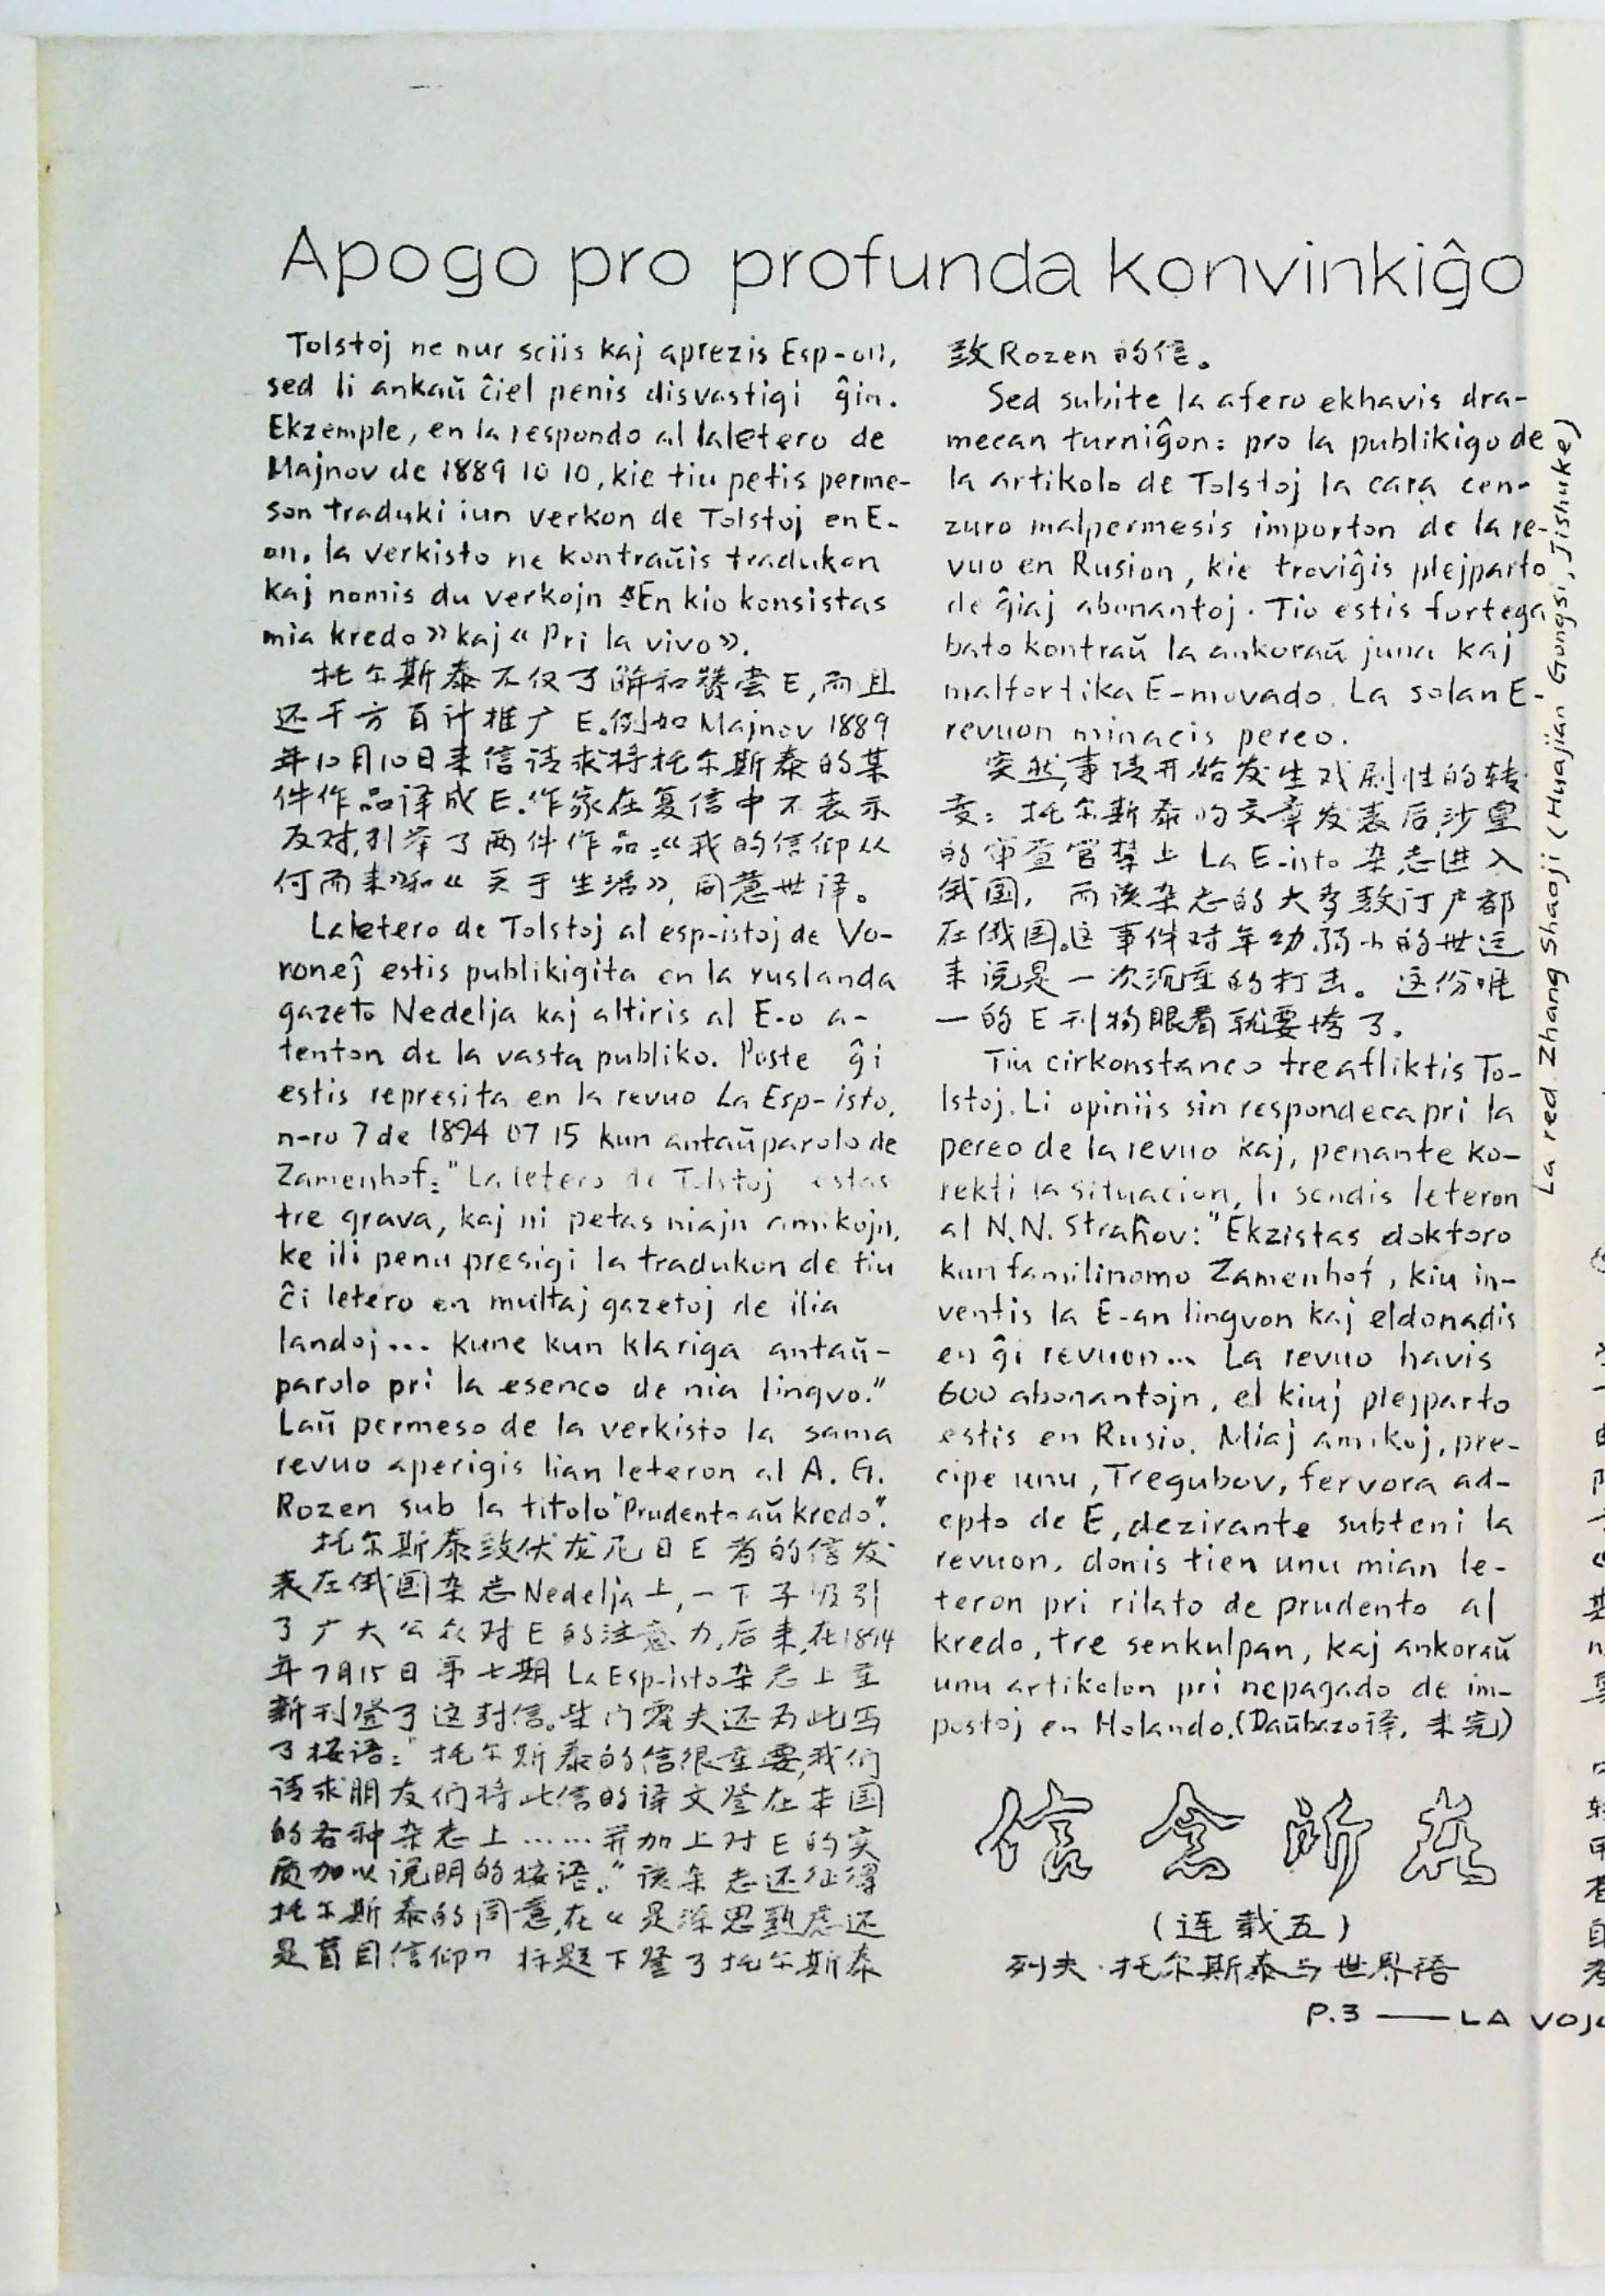 Apogo pro profunda konvinkiĝo
Tolstoj ne nur sciis kaj aprezis Esp-on,
sed li ankaŭ ĉiel penis disvastigi ĝin.
Ekzemple, en la respondo al laletero de
Majnov de 1889 10 10, kie tiu petis perme-
son traduki iun verkon de Tolstoj en E-
on, la verkisto ne kontraŭis tradukon
kaj nomis du verkojn «En kio konsistas
mia kredo» kaj « Pri la vivo».
托尔斯泰不仅了解和赞尝E,而且
还千方百计推广E。例如Majnov 1889
年10月10日来信请求将托尔斯泰的某
件作品译成E.作家在复信中不表示
反对,列举了两件作品:«我的信仰从
何而来»和«关于生活»,同意世译。
Laletero de Tolstoj al esp-istoj de Vo-
roneĵ estis publikigita en la ruslanda
gazeto Nedelja kaj altiris al E-o a-
tenton de la vasta publiko. Poste ĝi
estis represita en la revuo La Esp-isto,
n-ro 7 de 1894 07 15 kun antaŭparolo de
Zamenhof: "La letero de Tolstoj estas
tre grava, kaj ni petas niajn amikojn,
ke ili penu presigi la tradukon de tiu
ĉi letero en multaj gazetoj de ilia
landoj... kune kun klariga antaŭ-
parolo pri la esenco de nia lingvo."
Laŭ permeso de la verkisto la sama
revuo aperigis lian leteron al A. G.
Rozen sub la titolo "Prudento aŭ kredo".
托尔斯泰致伏龙尼日E者的信发
表在俄国杂志Nedelja上,一下子吸引
了广大公众对E的注意力,后来,在1894
年7月15日第七期La Esp-isto杂志上重
新刊登了这封信。柴门霍夫还为此写
了按语:"托尔斯泰的信很重要,我们
请求朋友们将此信的译文登在本国
的各种杂志上……并加上对E的实
质加以说明的按语。"该杂志还征得
托尔斯泰的同意,在«是深思熟虑还
是盲目信仰»标题下登了托尔斯泰
致Rozen的信。
Sed subite la afero ekhavis dra-
mecan turniĝon: pro la publikigo de
la artikolo de Tolstoj la cara cen-
zuro malpermesis importon de la re-
vuo en Rusion, kie troviĝis plejparto
de ĝiaj abonantoj. Tio estis fortega
bato kontraŭ la ankoraŭ juna kaj
malfortika E-movado. La solan E-
revuon minacis pereo.
突然,事情开始发生戏剧性的转
变:托尔斯泰的文章发表后,沙皇
的审查官禁止La E-isto杂志进入
俄国,而该杂志的大多数订户都
在俄国。这事件对年幼、弱小的世运
来说是一次沉重的打击。这份唯
一的E刊物眼看就要垮了。
Tiu cirkonstanco treafliktis To-
lstoj. Li opiniis sin respondeca pri la
pereo de la revuo kaj, penante ko-
rekti la situacion, li sendis leteron
al N.N. Straĥov: "Ekzistas doktoro
kun familinomo Zamenhof, kiu in-
ventis la E-an lingvon kaj eldonadis
en ĝi revuon... La revuo havis
600 abonantojn, el kiuj plejparto
estis en Rusio. Miaj amikoj, pre-
cipe unu, Tregubov, fervora ad-
epto de E, dezirante subteni la
revuon, donis tien unu mian le-
teron pri rilato de prudento al
kredo, tre senkulpan, kaj ankoraŭ
unu artikolon pri nepagado de im-
postoj en Holando. (Daŭbazo译,未完)
信念所花
(连载五)
列夫·托尔斯泰与世界语
P.3 —— LA VOJO
La red. Zhang Shaoji (Huajian Gongsi, Jishuke)